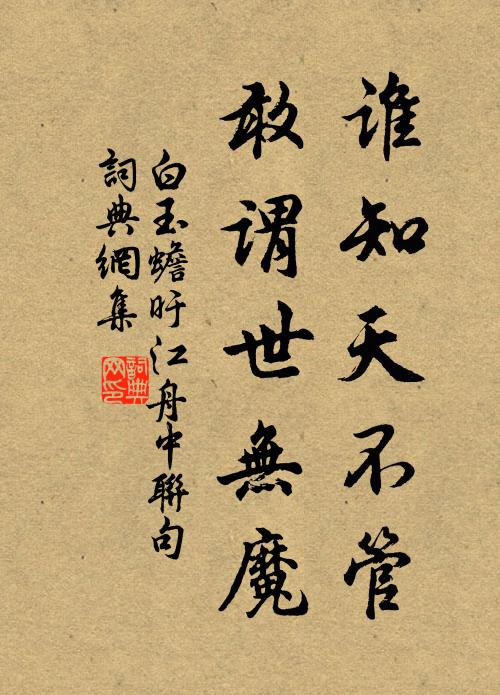 誰知天不管
敢謂世無魔
白玉蟾旴江舟中聯句
詞典網集
詞典
網印